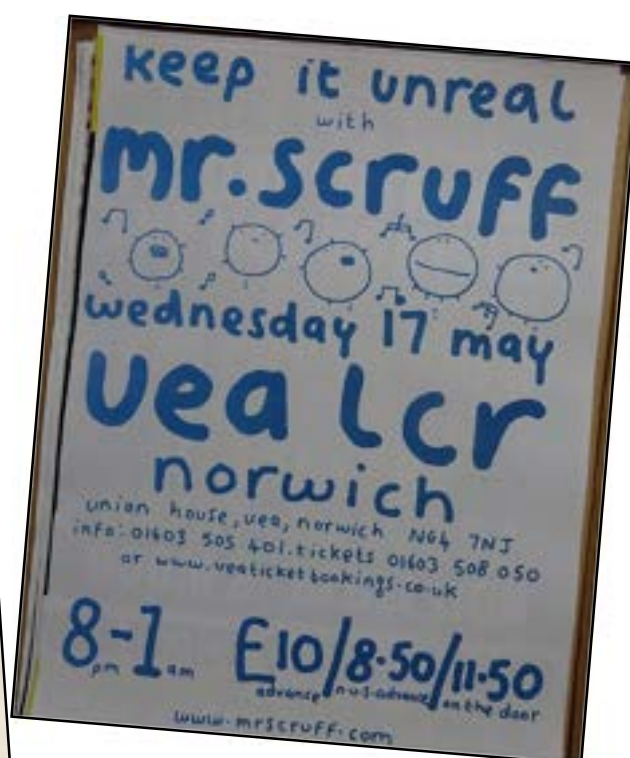 keep it unreal
with
mr.scruff
wednesday 17 may
uea lcr
norwich
union house, uea, norwich NG4 7NJ
info: 01603 505 401. tickets 01603 508 050
or www.ueaticketbookings.co.uk
8-1 £10/8.50/11.50
pm am advance n.u.s. advance on the door
www.mrscruff.com